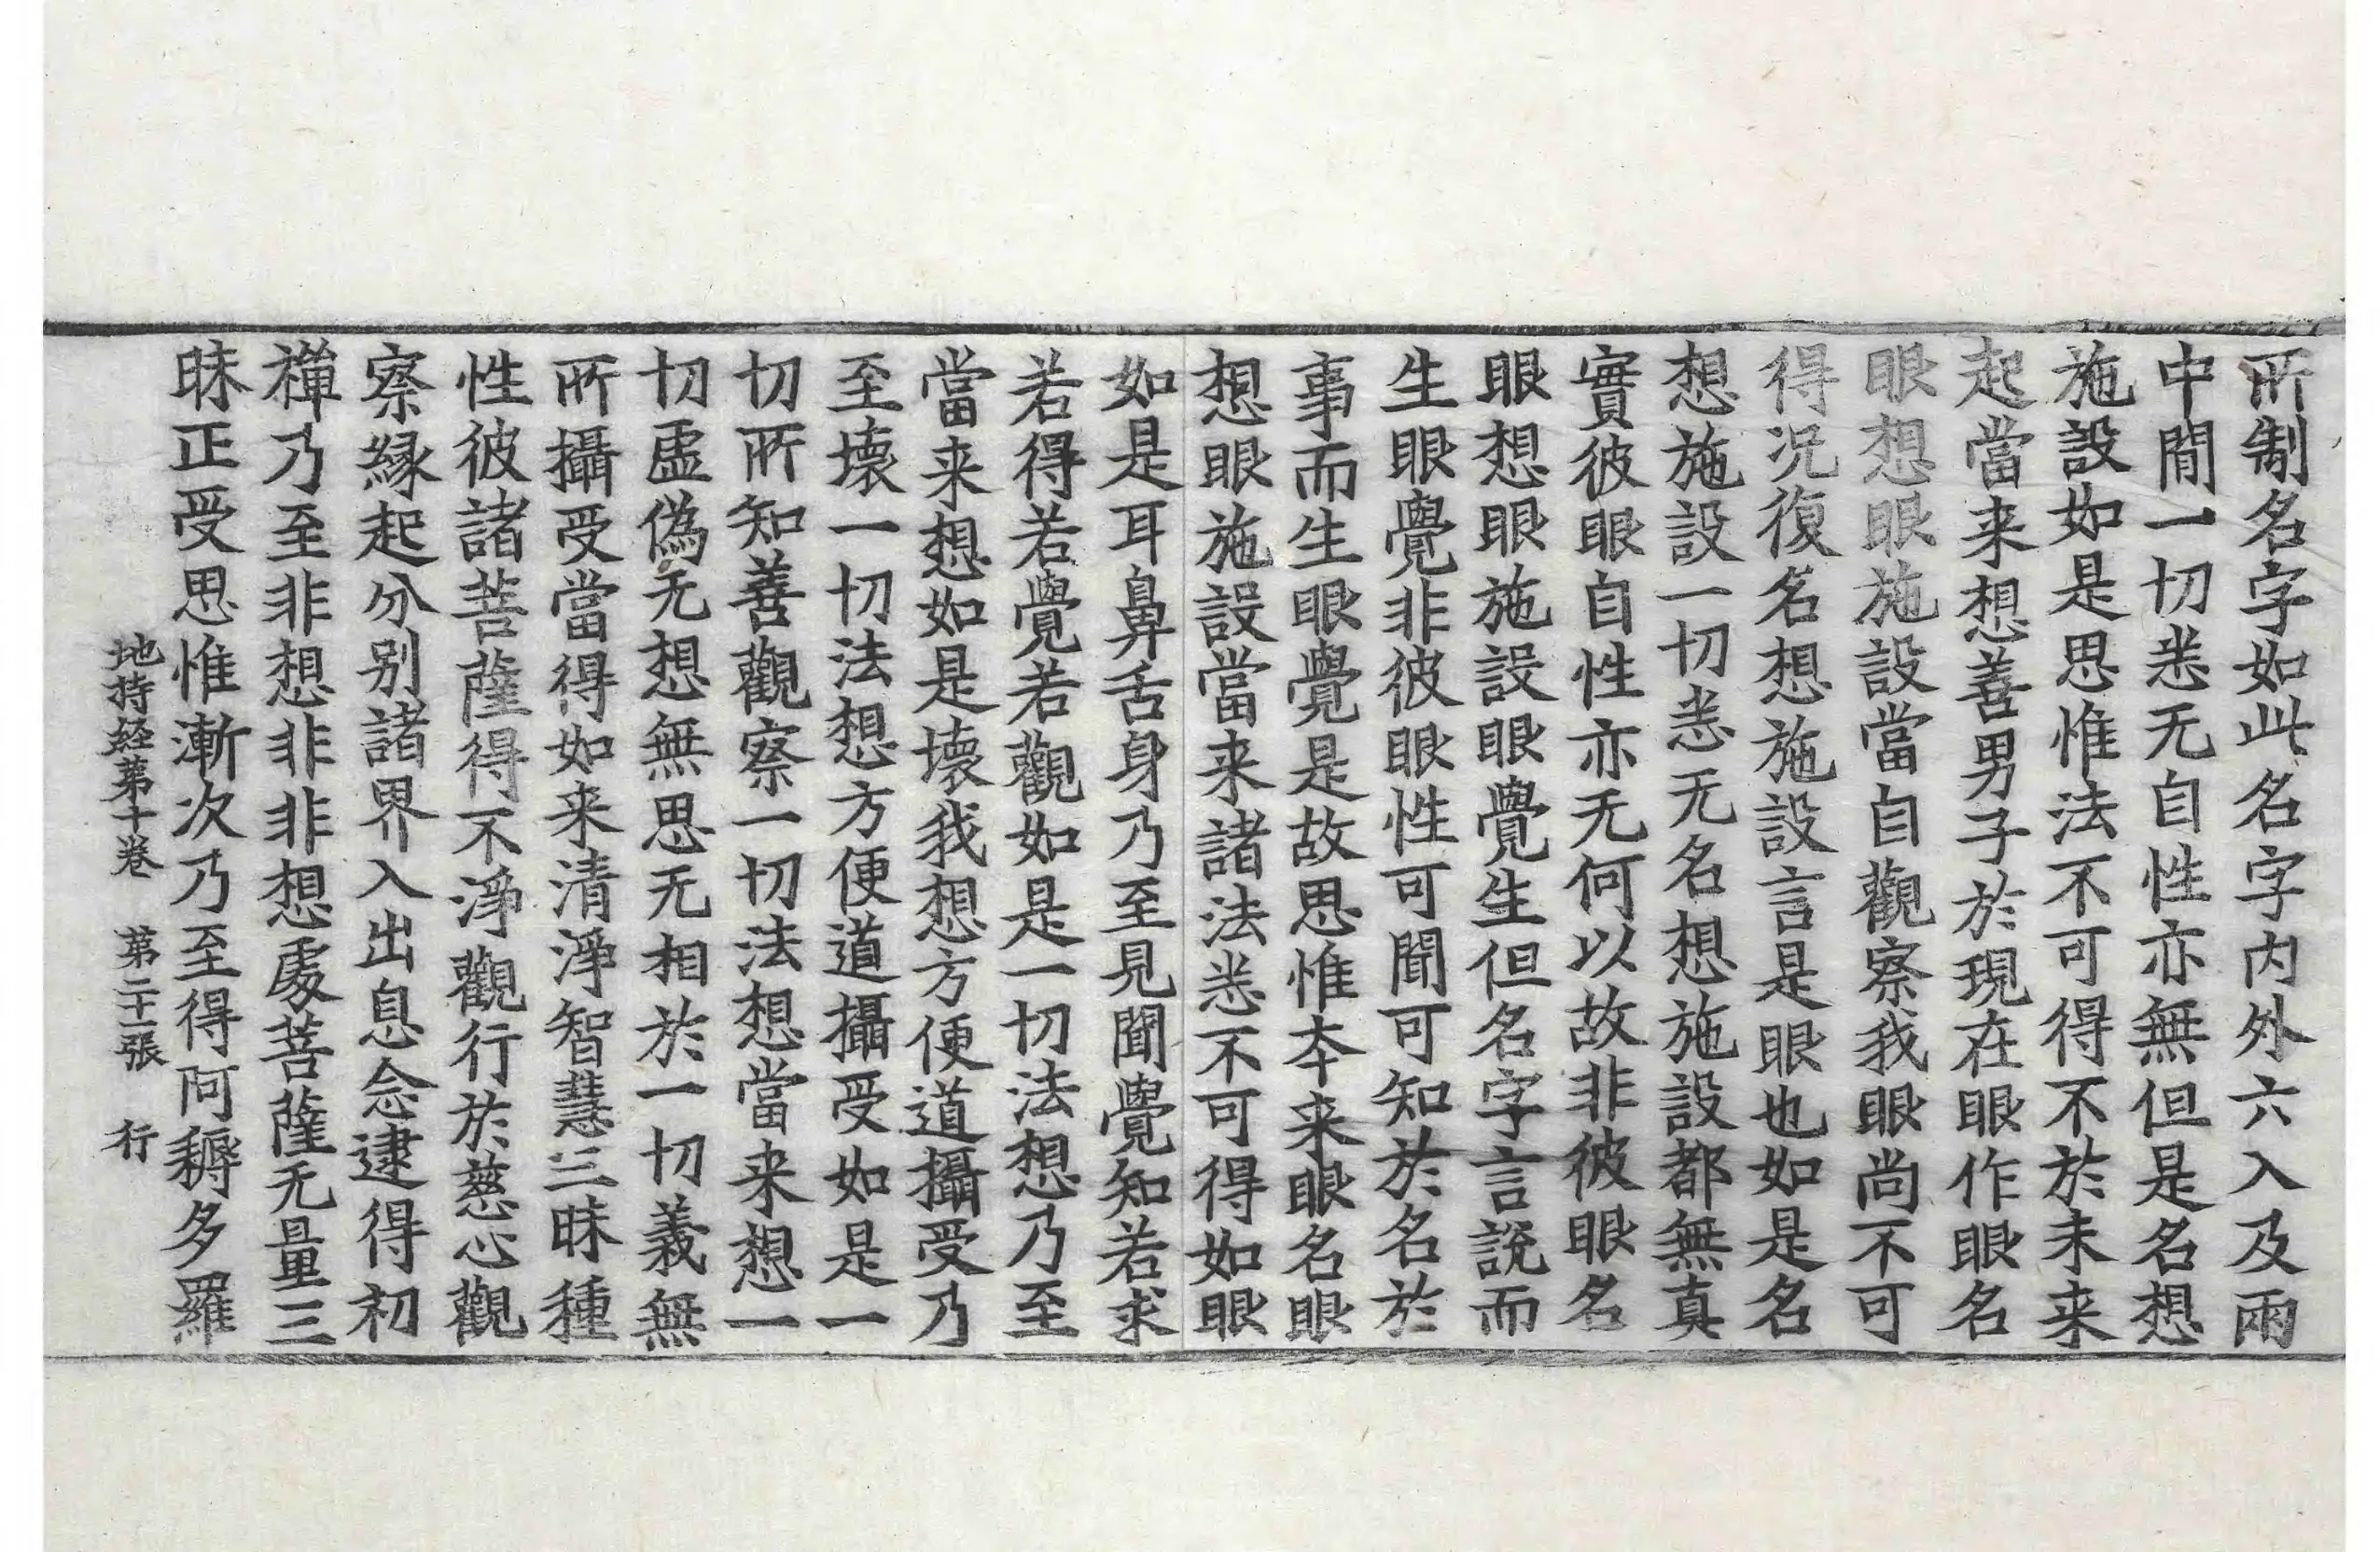 所制名字如此名字内外六入及兩
中間一切悉无自性亦無但是名想
施設如是思惟法不可得不於未来
起當来想善男子於現在眼作眼名
眼想眼施設當自觀察我眼尚不可
得況復名想施設言是眼也如是名
想施設一切悉无名想施設都無真
實彼眼自性亦无何以故非彼眼名
眼想眼施設眼覺生但名字言說而
生眼覺非彼眼性可聞可知於名於
事而生眼覺是故思惟本来眼名眼
想眼施設當来諸法悉不可得如眼
如是耳鼻舌身乃至見聞覺知若求
若得若覺若觀如是一切法想乃至
當来想如是壞我想方便道攝受乃
至壞一切法想方便道攝受如是一
切所知善觀察一切法想當来想一
切虛偽无想無思无相於一切義無
所攝受當得如来清淨智慧三昧種
性彼諸菩薩得不淨觀行於慈心觀
察縁起分别諸界入出息念逮得初
禪乃至非想非非想處菩薩无量三
昧正受思惟漸次乃至得阿耨多羅
地持経第十卷 第二十一張 行